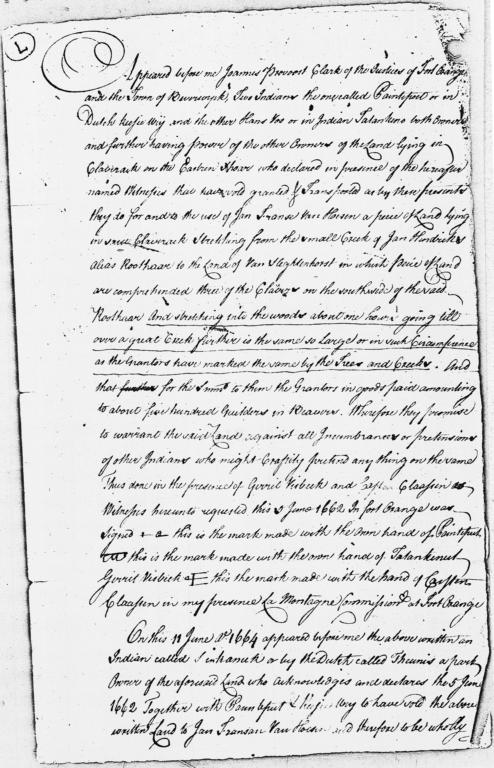 L
Appeared before me Joannes Provoost Clark of the Justices of Fort Orange
and the Town of Beverwyck, Two Indians the one called Paintepust or in
Dutch keesie Wey and the other Hans Vos or in Indian Tatankeno both Owners
and further having power of the other Owners of the Land lying in
Claverack on the Eastren Shoar who declared in presence of the hereafter
named Witnesses that have sold granted & Transported as by these presents
they do for and to the use of Jan Franse Van Hoesen a piece of Land lying
in said Claverack Stretching from the small Creek of Jan Hendricks
alias Roothaar to the Land of Van Slegtenhorst in which Peice of Land
are comprehended three of the Clavers on the southside of the said
Roothaar And stretching into the woods about one hour's going till
over a great Creek further is the same so large or in such Circumference
as the Grantors have marked the same by the Trees and Creeks. And
that further for the Summ to them the Grantors in goods paid amounting
to about five hundred Guilders in Beavers. Wherefore they promise
to warrant the said Land against all Incumbrances or pretensions
of other Indians who might Craftily pretend any thing on the same
Thus done in the presence of Gerrit Visbeek and Claassen as
Witnesses hereunto requested this 5 June 1662 In fort Orange was
signed + a this is the mark made with the own hand of Paintepust
this is the mark made with the own hand of Tatankenut
Gerrit Visbeek & E this the mark made with the hand of Carsten
Claassen in my presence La Montagne Commissiond at Fort Orange
On this 11 June Ao 1664 appeared before me the above written an
Indian called Sinkanuck or by the Dutch called Theunis a part
Owner of the aforesaid Land who acknowledges and declares the 5 June
1662 Together with Paintepust & keesie Wey to have sold the above
written Land to Jan Fransan Van Hoesen and therefore to be wholly